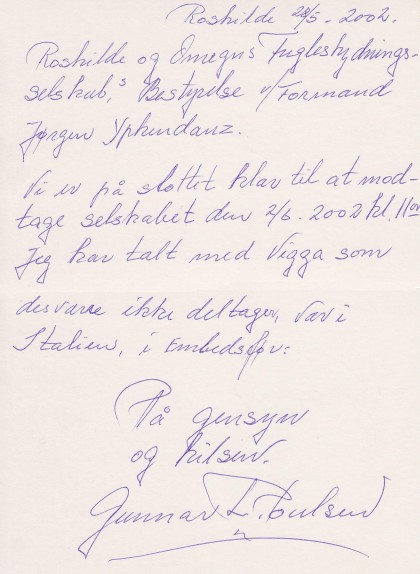 Roskilde 28/5 - 2002.
Roskilde og Omegns Fugleskydnings-
selskab,s Bestyrelse v/Formand
Jørgen Ypkendanz.
Vi er på slottet klar til at mod-
tage selskabet den 2/6. 2002 kl. 11 00
Jeg har talt med Vigga som
desværre ikke deltager, var i
Italien, i Embeds
På gensyn
og hilsen.
Gunnar L. Poulsen